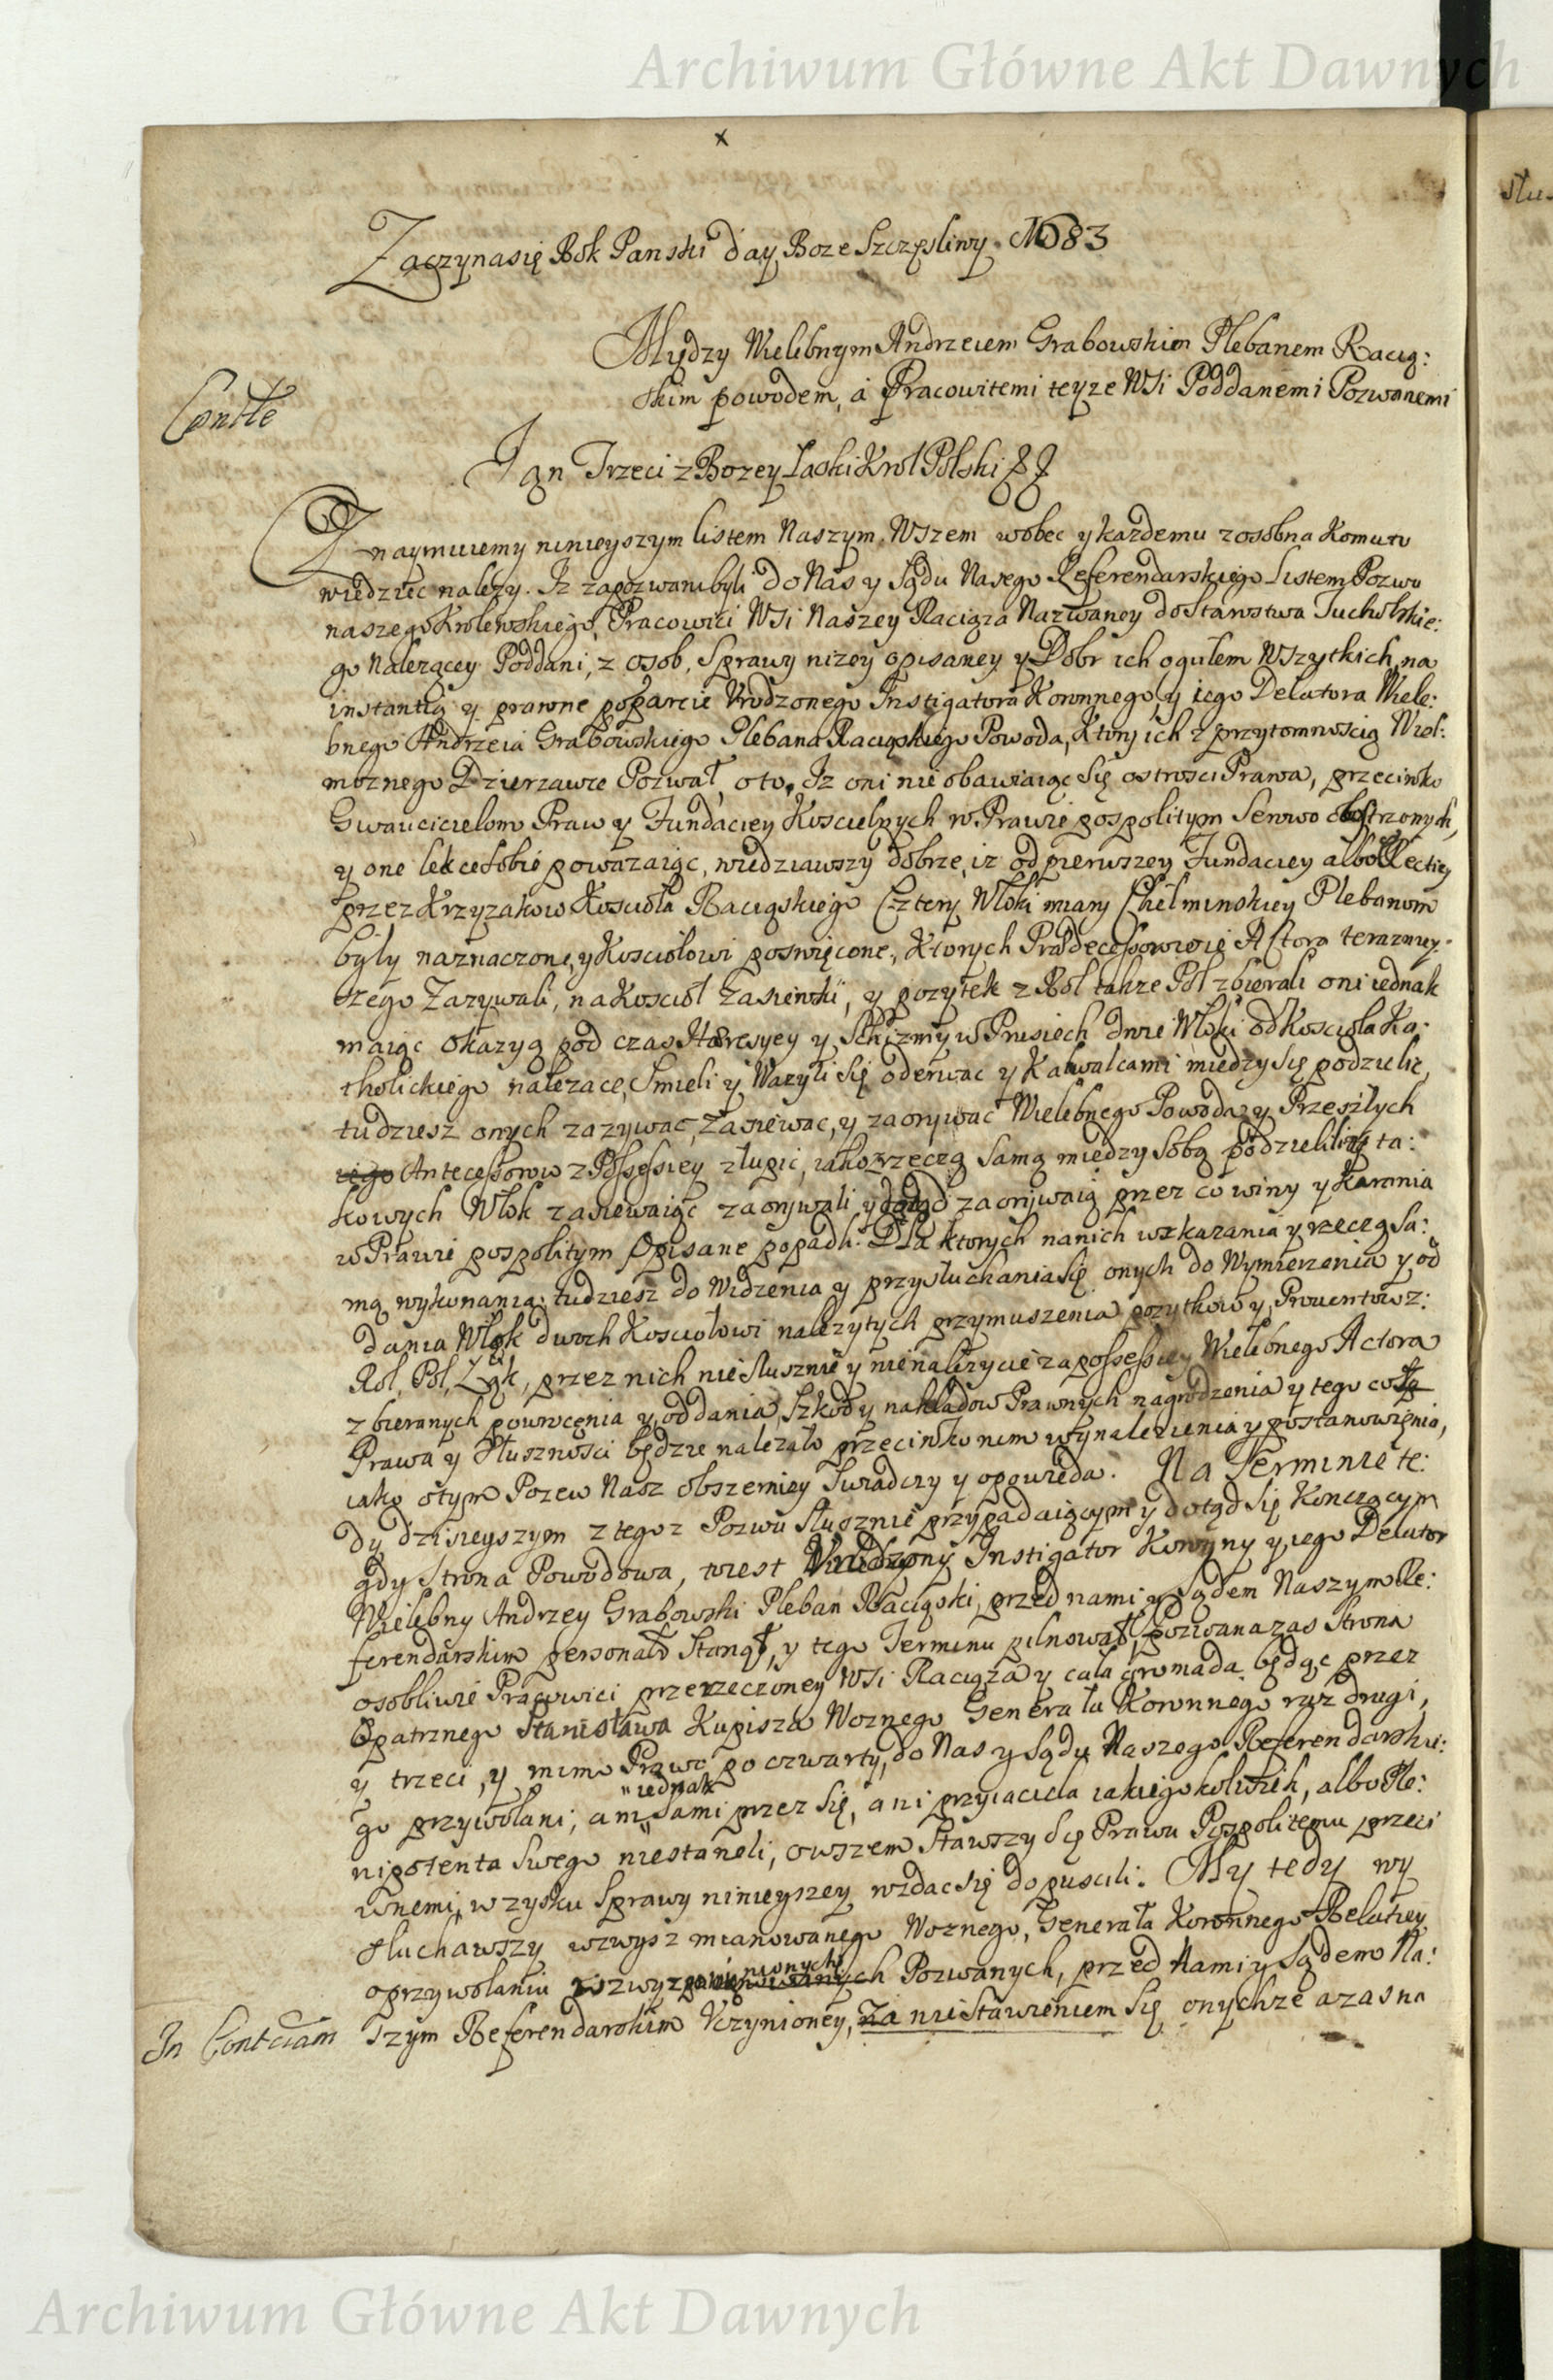 Archiwum Główne Akt Dawnych
x
Zaczyna się Rok Panski day Boze Szczęsliwy. 1683
Między Wielebnym Andrzeiem Grabowskim Plebanem Racią:
skim powodem, á Pracowitemi teyze Wsi Poddanemi Pozwanemi
Contle
Jan Trzeci z Bozey Łaski Krol Polski &&
Znaymuiemy ninieyszym listem Naszym Wszem wobec y kazdemu zosobna Komu tu
wiedziec nalezy. Iz zapozwani byli do Nas y Sądu Nasego Referendarskiego Listem Pozwu
naszego Krolewskiego, Pracowici Wsi Naszey Raciąza Nazwaney do Starostwa Tucholskie:
go Nalezącey Poddani, z osob, Sprawy nizey opisaney y Dobr ich ogułem Wszytkich, na
instantią y prawne poparcie Vrodzonego Instigatora Koronnego, y iego Delatora Wiele:
bnego Andrzeia Grabowskiego Plebana Raciąskiego Powoda, Ktory ich z przytomnoscią Wiel:
moznego Dzierzawce Pozwał, o to, Iz oni nie obawiaiąc Się ostrosci Prawa, przeciwko
Gwaucicielom Praw y Fundaciey Koscielnych w Prawie pospolitym Serwo obostrzonych,
y one lekce sobie powazaiąc, wiedziawszy dobrze, iz od pierwszey Fundaciey albo Erectiey
przez Krzyzakow Kosciоła Raciąskiego Cztery Włoki miary Chełminskiey Plebanom
były naznaczone, y Kosciołowi poswięcone, Ktorych Praedecessorowie Actora terazniey:
szego Zazywali, na Koscioł Zasiewali, y pozytek z Rol takze Pol zbierali oni iednak
maiąc okazyą pod czas Haeresyey y Schizmy w Prusiech dwie Włoki od Koscioła Ka:
tholickiego nalezace, Smieli y Wazyli Się oderwac y Kawalcami miedzy Się podzielic,
tudziesz onych zazywac, Zasiewac, y zaorywac Wielebnego Powoda y Przeszłych
iego Antecessorow z Possessiey złupic, iakoz rzeczą Samą miedzy Sobą podzieliliszę ta:
kowych Włok zasiewaiąc zaorywali y dotąd zaorywaią przez co winy y Karania
w Prawie pospolitym Opisane popadli. Dla ktorych na nich wskazania y rzeczą Sa:
mą wykonania, tudziesz do Widzenia y przysłuchania Się onych do Wymierzenia y od
dania Włok dwoch Kosciołowi nalezytych przymuszenia pozytkow y Prouentow z:
Rol, Pol, Łąk, przez nich nie Słusznie y nienalezycie za possessiey Wielebnego Actora
zbieranych powrocenia y oddania, Szkod y nakładow Prawnych nagrodzenia y tego co Są
Prawa y Słusznosci będzie nalezało przeciwko nim wynalezienia y postanowienia,
iako o tym Pozew Nasz obszerniey Swiadczy y opowieda. Na Terminie te:
dy dzisieyszym z tegoz Pozwu Słusznie przypadaiącym y dotąd Się Konczącym
gdy Strona Powodowa, to iest Vrodzony Instigator Koronny y iego Delator
Wielebny Andrzey Grabowski Pleban Raciąski, przed nami y Sądem Naszym Re:
ferendarskim personalr Stanął, y tego Terminu pilnował, Pozwana zas Strona
osobliwie Pracowici przerzeczoney Wsi Raciąza y cała gromada będąc przez
Opatrznego Stanisława Kupisza Woznego Generała Koronnego raz drugi,
y trzeci, y mimo Prawo po czwarty, do Nas y Sądu Naszego Referendarskie:
iednak
go przywołani, ani Sami przez Się, ani przyiaciela iakiegokolwiek, albo Ple:
nipotenta Swego nie stanęli, owszem Stawszy Się Prawu Pospolitemu przeci
wnemi, w zysku Sprawy ninieyszey wzdac się dopuscili. My tedy wy
słuchawszy wzwysz mianowanego Woznego, Generała Koronnego Relatiey
nionych
o przywołaniu wzwyz Pozwanych, przed Nami y Sądem Na:
In Contciam
szym Referendarskim Vczynioney, Za nie Stawieniem Się onychze a zasna
Archiwum Główne Akt Dawnych